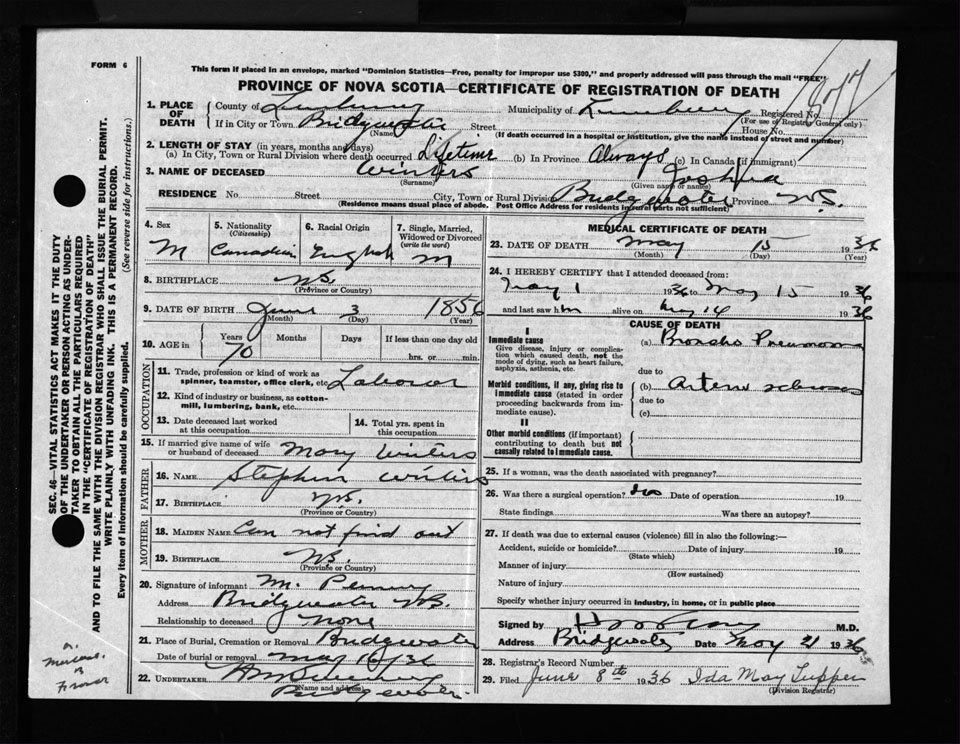 FORM 6
This form if placed in an envelope, marked "Dominion Statistics—Free, penalty for improper use $300," and properly addressed will pass through the mail "FREE"
PROVINCE OF NOVA SCOTIA—CERTIFICATE OF REGISTRATION OF DEATH
1. PLACE OF DEATH
County of Lunenburg Municipality of Lunenburg Registered No.
(For use of Registrar General only)
If in City or Town Bridgewater Street House No.
(Name) (If death occurred in a hospital or institution, give the name instead of street and number)
2. LENGTH OF STAY (in years, months and days)
(a) In City, Town or Rural Division where death occurred Lifetime (b) In Province Always (c) In Canada (if immigrant)
3. NAME OF DECEASED Winters Joshua
(Surname) (Given name or names)
RESIDENCE No. Street City, Town or Rural Division Bridgewater Province N.S.
(Residence means usual place of abode. Post Office Address for residents in rural parts not sufficient)
4. Sex M
5. Nationality (Citizenship) Canadian
6. Racial Origin English
7. Single, Married, Widowed or Divorced (write the word) M
8. BIRTHPLACE N.S.
(Province or Country)
9. DATE OF BIRTH June 3 1856
(Month) (Day) (Year)
10. AGE in Years Months Days If less than one day old
70 hrs. or min.
OCCUPATION
11. Trade, profession or kind of work as spinner, teamster, office clerk, etc. Labourer
12. Kind of industry or business, as cotton-mill, lumbering, bank, etc.
13. Date deceased last worked at this occupation
14. Total yrs. spent in this occupation
15. If married give name of wife or husband of deceased Mary Winters
FATHER
16. NAME Stephen Winters
17. BIRTHPLACE N.S.
(Province or Country)
MOTHER
18. MAIDEN NAME Can not find out
19. BIRTHPLACE N.S.
(Province or Country)
20. Signature of informant M. Penney
Address Bridgewater N.S.
Relationship to deceased None
21. Place of Burial, Cremation or Removal Bridgewater
Date of burial or removal May 16/36
22. UNDERTAKER
(Name and address)
Bridgewater
MEDICAL CERTIFICATE OF DEATH
23. DATE OF DEATH May 15 1936
(Month) (Day) (Year)
24. I HEREBY CERTIFY that I attended deceased from:
May 1 1936 to May 15 1936
and last saw him alive on May 14 1936
CAUSE OF DEATH
I
Immediate cause
Give disease, injury or complication which caused death, not the mode of dying, such as heart failure, asphyxia, asthenia, etc.
(a) Broncho Pneumonia
due to
Morbid conditions, if any, giving rise to immediate cause (stated in order proceeding backwards from immediate cause).
(b) Arterio sclerosis
due to
(c)
II
Other morbid conditions (if important) contributing to death but not causally related to immediate cause.
25. If a woman, was the death associated with pregnancy?
26. Was there a surgical operation? No Date of operation 19
State findings Was there an autopsy?
27. If death was due to external causes (violence) fill in also the following:—
Accident, suicide or homicide? Date of injury 19
(State which)
Manner of injury
(How sustained)
Nature of injury
Specify whether injury occurred in industry, in home, or in public place
Signed by M.D.
Address Bridgewater Date May 21 1936
28. Registrar's Record Number
29. Filed June 8th 1936 Ida May Tupper
(Division Registrar)
SEC. 46—VITAL STATISTICS ACT MAKES IT THE DUTY OF THE UNDERTAKER OR PERSON ACTING AS UNDER-
TAKER TO OBTAIN ALL THE PARTICULARS REQUIRED
IN THE "CERTIFICATE OF REGISTRATION OF DEATH"
AND TO FILE THE SAME WITH THE DIVISION REGISTRAR WHO SHALL ISSUE THE BURIAL PERMIT.
WRITE PLAINLY WITH UNFADING INK. THIS IS A PERMANENT RECORD.
Every item of information should be carefully supplied. (See reverse side for instructions.)